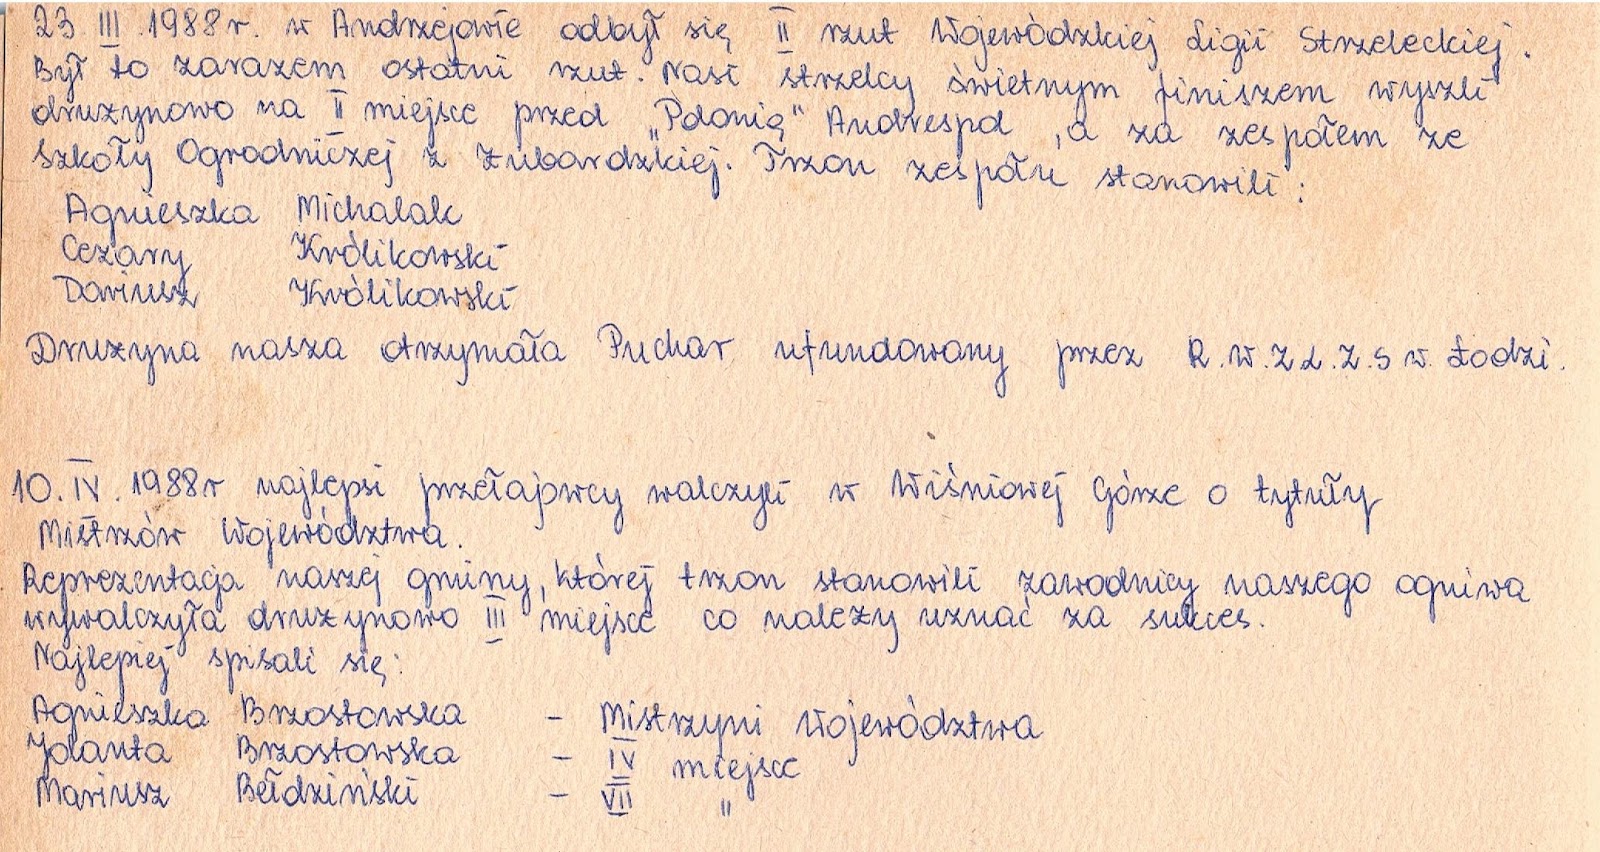 23.III.1988r. w Andrzejowie odbył się II rzut Wojewódzkiej Ligii Strzeleckiej.
Był to zarazem ostatni rzut. Nasi strzelcy świetnym finiszem wyszli
drużynowo na II miejsce przed „Polonią" Andrespol, a za zespołem ze
Szkoły Ogrodniczej z Żubardzkiej. Trzon zespołu stanowili:
Agnieszka Michalak
Cezary Królikowski
Dariusz Królikowski
Drużyna nasza otrzymała Puchar ufundowany przez R.W.Z L.Z.S w. Łodzi.
10.IV.1988r najlepsi przełajowcy walczyli w Wiśniowej Górze o tytuły
Mistrzów Województwa.
Reprezentacja naszej gminy, której trzon stanowili zawodnicy naszego ogniwa
wywalczyła drużynowo III miejsce co należy uznać za sukces.
Najlepiej spisali się:
Agnieszka Brzostowska – Mistrzyni Województwa
Jolanta Brzostowska – IV miejsce
Mariusz Bełdziński – VII "